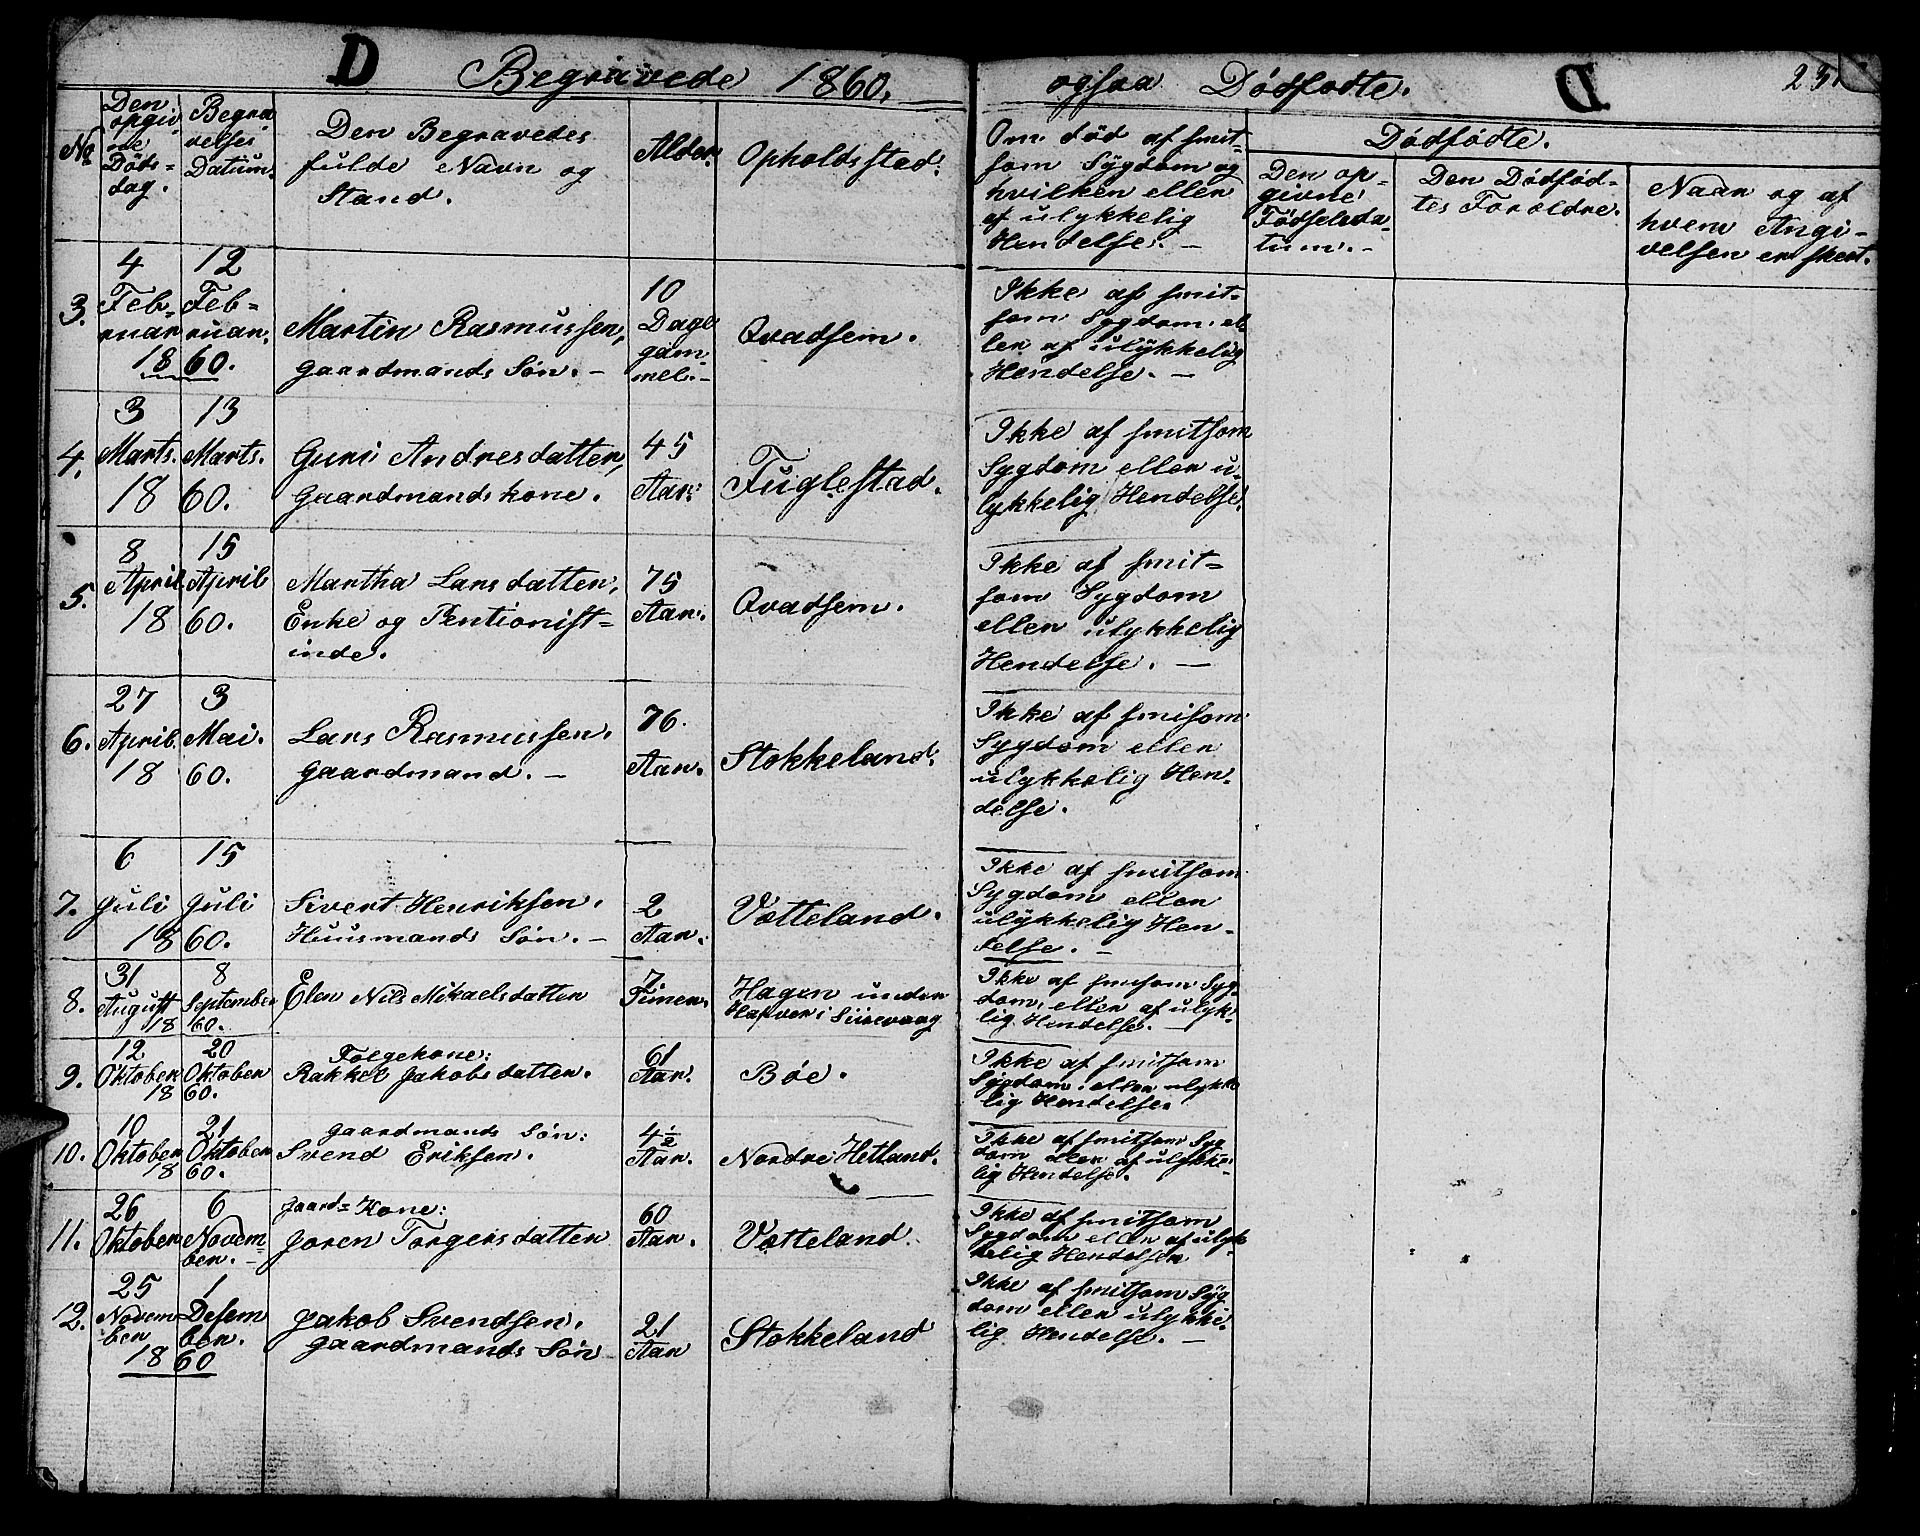 D Begravede 1860. ogsaa Dødfødte. D 23
No
Den opgivne Døds-dag.
Begravelses Datum.
Den Begravedes
fulde Navn og
Stand.
Alder
Opholdsstad.
Om død af smit-
som Sygdom og
hvilken eller
af ulykkelig
Hendelse. -
Dødfødte.
Den op-
givne
Fødselsda-
tum. -
Den Dødfød-
tes Foreldre.
Naar og af
hvem Angi-
velsen er skeet.
3.
4 12
Feb- Feb-
ruar ruar.
18 60.
Martin Rasmussen,
Gaardmands Søn. -
10
Dage
gam-
mel. -
Qvadsem.
Ikke af smit-
som Sygdom el-
ler af ulykkelig
Hendelse. -
4.
3 13
Marts. Marts.
18 60.
Guri Andresdatter,
Gaardmands kone.
45
Aar.
Fuglestad.
Ikke af smitsom
Sygdom eller u-
lykkelig Hendelse.
5.
8 15
April April
18 60.
Martha Larsdatter,
Enke og Pentionist-
inde.
75
Aar.
Qvadsem.
Ikke af smit-
som Sygdom
eller ulykkelig
Hendelse. -
6.
27 3
April. Mai.
18 60.
Lars Rasmussen.
Gaardmand. -
76.
Aar.
Stokkeland.
Ikke af smisom
Sygdom eller
ulykkelig Hen-
delse.
7.
6 15
Juli Juli
18 60.
Sivert Henriksen.
Huusmands Søn. -
2
Aar.
Vatteland.
Ikke af smitsom
Sygdom eller
ulykkelig Hen-
delse. -
8.
31 8
August September
18 60.
Elen Nils Mikaelsdatter
7
Timer.
Hagen under
Sirevaag
Ikke af smisom Syg-
dom, eller af ulyk-
lig Hendelse. -
9.
12 20
Oktober Oktober
18 60.
Følgekone:
Rakkel Jakobsdatter.
61
Aar.
Bøe.
Ikke af smitsom
Sygdom. eller ulykk
lig Hendelse.
10.
10 21
Oktober Oktober
18 60.
Gaardmands Søn:
Svend Eriksen.
4½
Aar.
Nordre Hetland.
Ikke af smitsom Syg
dom eller af ulykke-
lig Hendelse.
11.
26 6
Oktober Novem-
ber. -
Gaard= Kone:
Joren Torgersdatter
60
Aar.
Vatteland.
Ikke af smitsom
Sygdom eller af ulyk
kelig Hendelser
12.
25 1
Novem- Desem
ber ber.
18 60
Jakob Svendsen.
Gaardmands Søn
21
Aar
Stokkeland
Ikke af smitsom Syg
dom eller ulykke-
lig Hendelse. -